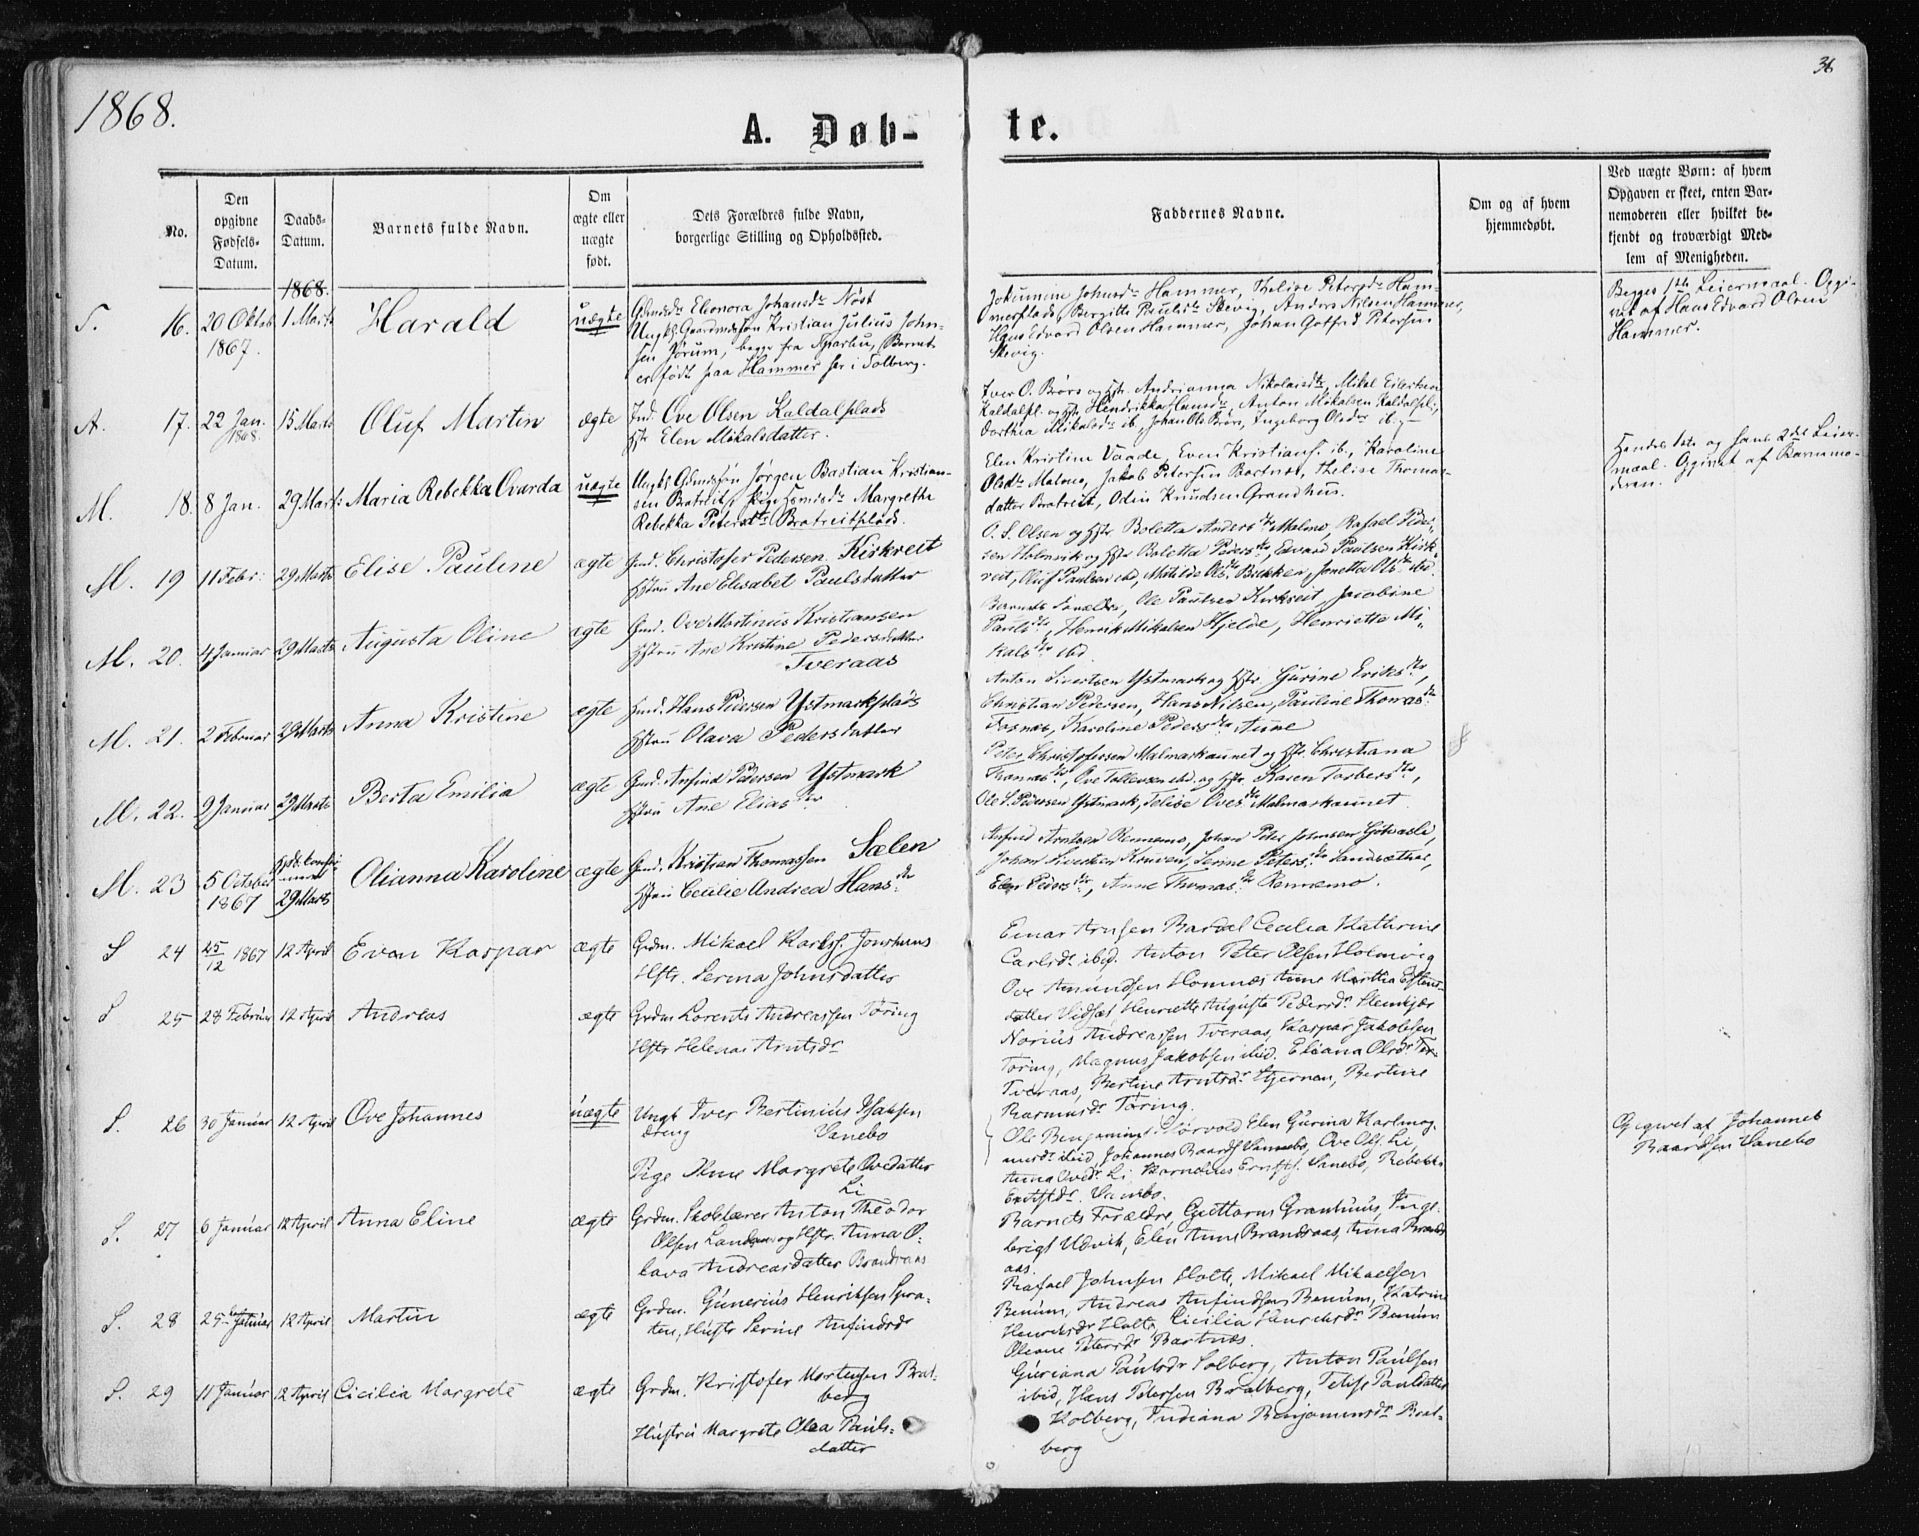 1868.
36
A. Døb-
te.
No.
Den
opgivne
Fødsels-
Datum.
Daabs-
Datum.
Barnets fulde Navn.
Om
ægte eller
uægte
født.
Dets Forældres fulde Navn,
borgerlige Stilling og Opholdssted.
Faddernes Navne.
Om og af hvem
hjemmedøbt.
Ved uægte Børn: af hvem
Opgaven er skeet, enten Bar-
nemoderen eller hvilket be-
kjendt og troværdigt Med-
lem af Menigheden.
1868.
S. 16. 20 Oktob 1867. 1 Marts Harald uægte
Eleonora Johansdr Nøst
Ungk. Gaardmdsøn Kristian Julius John-
sen Jørum, begge fra Sparbu, Barnet
er født paa Hammer her i Solberg.
Jokumine Johnsdr Hammer, Thelise Petersdr Ham-
merplads, Bergitte Paulsdr Skevig, Anders Nilsen Hammer,
Hans Edvard Olsen Hammer, Johan Gotfred Petersen
Skevig.
Begges 1ste Leiermaal. Opgi-
vet af Hans Edvard Olsen
Hammer.
A. 17. 22 Jan. 1868. 15 Marts Oluf Martin ægte
Ind. Ove Olsen Kaldalplads
Hst. Elen Mikalsdatter.
Iver O. Børs og Hst. Andrianna Nikolaisdtr, Mikal Eilertsen
Kaldalpl. og Hst. Hendrikka Hansdtr, Anton Mikalsen Kaldalspl.,
Dorthea Mikalsdr ib., Johan Ols. Børs, Ingeborg Olsdr ib.
M. 18. 8 Jan. 29 Marts: Maria Rebekka Ovarda uægte
Ungk. Gdmdssøn Jørgen Bastian Kristian-
sen Bratreit, Pige Margrethe
Rebekka Petersdtr Bratreitplads.
Elen Kristine Vaade, Even Kristians. ib., Karoline
Olsdr Malmo, Jakob Petersen Bartnes, Thelise Thomas-
datter Bratreit, Odin Knudsen Grandhus.
Hendes 1ste og hans 2det Leier-
maal. Opgivet af Barnemo-
deren.
M. 19 11 Febr: 29 Marts Elise Pauline ægte
Gmd. Christofer Pedersen Kirkreit
Hstru Ane Elisabet Paulsdatter
O. S. Olsen og Hstr Boletta Andersdtr Malmo, Rafael Peder-
sen Holmvik og Hstr Boletta Pedersdtr, Edvard Paulsen Kirk-
reit, Oluf Paulsen ibd, Matilde Olsdr Bakken, Jonetta Olsdr ibd.
M. 20. 4 Januar 29 Marts Augusta Oline ægte
Gmd. Ove Martinus Kristiansen
Hstru Ane Kristine Pedersdatter
Tveraas
Barnets Forældre, Ole Paulsen Kirkreit, Jacobine
Paulsdtr, Henrik Mikalsen Hjelde, Henriette Mi-
kalsdtr ibd.
M. 21. 2 Februar 29 Marts Anna Kristine ægte
Hans Pedersen Ystmarkplads
Hstru Olava Pedersdatter
Anton Sivertsen Ystmark og Hstr. Gurine Eriksdtr,
Christian Pedersen, Hans Nilsen, Pauline Thomasdtr
Fosnæs, Karoline Pedersdtr Aune
M. 22. 9 Januar 29 Marts Berta Emilia ægte
Gmd. Anfind Pedersen Ystmark
Hstru Ane Eliasdtr
Peter Christofersen Malmarkaunet og Hstr. Christiana
Thomasdtr, Ove Tollersen ibd. og Hstr. Karen Torbersdtr,
Ole S. Pedersen Ystmark, Telise Ovesdtr Malmarkaunet.
M. 23 5 October 1867 29 Marts Olianna Karoline ægte
Gmd. Kristian Thomassen Sælen
Hstru Cecilie Andrea Hansdtr
Anfind Arntsen Rennemo, Johan Peter Johnsen
Johan Sivertsen Konven, Serine Petersdtr Landsæthal,
Elen Pedersdtr, Anne Thomasdtr Rennemo.
S 24 25/12 1867 12 April Even Kaspar ægte
Grdm. Mikael Karlss. Jonshuus
Hstr. Serina Johnsdatter
Einar Arnsen Bardal Cecilia Kathrine
Carlsdr ibid. Anton Peter Olsen Holmvig
Ove Amundsen Homnæs Anne Martha
S 25 28 Februar 12 April Andreas ægte
Grdm Lorents Andreassen Tøring
Hstr Helena Arntsdr
datter Vidsæt Henriette Augusta Pedersdr Stenkjær
Norius Andreassen Tveraas, Kaspar Jakobsen
Tøring, Magnus Jakobsen ibid. Eliana Olsdr
Tveraas, Bertine Arntsdr Stjernen, Bertine
Rasmusdr Tøring.
S. 26 30 Januar 12 April Ove Johannes uægte
Ungk Iver Bertinius Isaksen
dreng Vanebo
Pige Anne Margrete Ovedatter
Li
Ole Benjamins. Størvold Elen Gurina Karlmag-
nusdr ibid, Johannes Baards Vanebo, Ove Ols. Li,
Anna Ovedr Li, Bernchus Ernsts. Vanebo, Rebekka
Ernstdr. Vanebo.
Opgivet af Johannes
Baardsen Vanebo
S. 27 6 Januar 12 April Anna Eline ægte
Grdm. Skolelærer Anton Theodor
Olsen og Hstr. Anna O-
lava Andreasdatter Brandraas
Barnets Forældre, Guttorm Granhuus, Inge-
brigt Udvik, Elen Anne Brandraas, Anna Brands
aas.
S. 28 25 Januar 12 April Martin ægte
Grdm. Gunerius Henriksen Spra-
ten, Hustr Serine Anfindsdr
Rafael Johnsen Holte, Mikael Mikaelsen
Benum, Andreas Anfindsen Benum, Katrine
Henriksdr Holte, Cicilia Henriksdr Benum
Oleane Petersdr Bartnæs.
S. 29 11 Januar 12 April Cicilia Margrete ægte
Grdm. Kristofer Mortensen Brat-
berg
Hustru Margrete Olea Pauls-
datter
Guriana Paulsdr Solberg, Anton Paulsen
ibid, Hans Petersen Bratberg, Telise Paulsdatter
Holberg, Indiana Benjaminsdr Brat-
berg